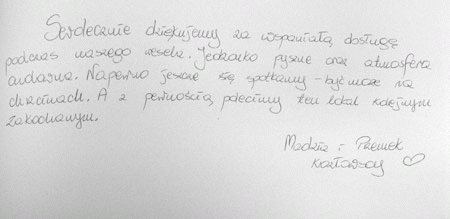 Serdecznie dziękujemy za wspaniałą obsługę
podczas naszego wesela. Jedzonko pyszne oraz atmosfera
cudowna. Napewno jeszcze się spotkamy - być może na
chrzcinach. A z pewnością polecimy ten lokal kolejnym
zakochanym.
Madzia i Przemek